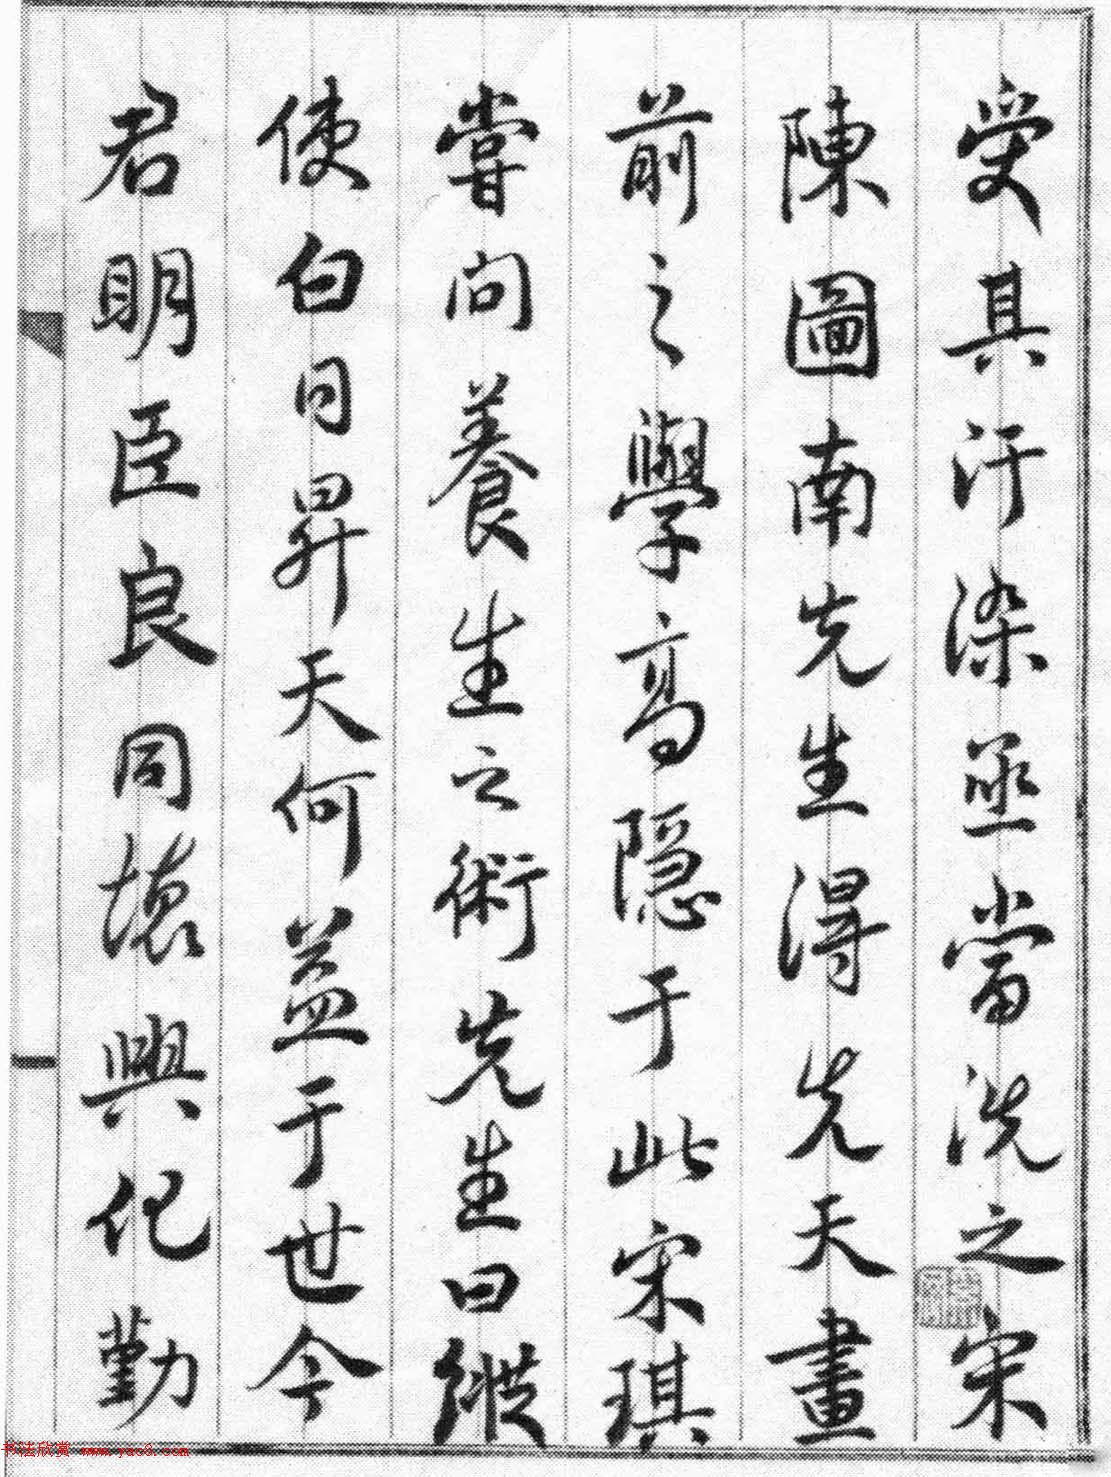 受其汙染亟當洗之宋
陳圖南先生得先天畫
前之學高隱于此宋琪
嘗問養生之術先生曰縱
使白日昇天何益于世今
君明臣良同懷興化勤
书法欣赏 www.yac8.com